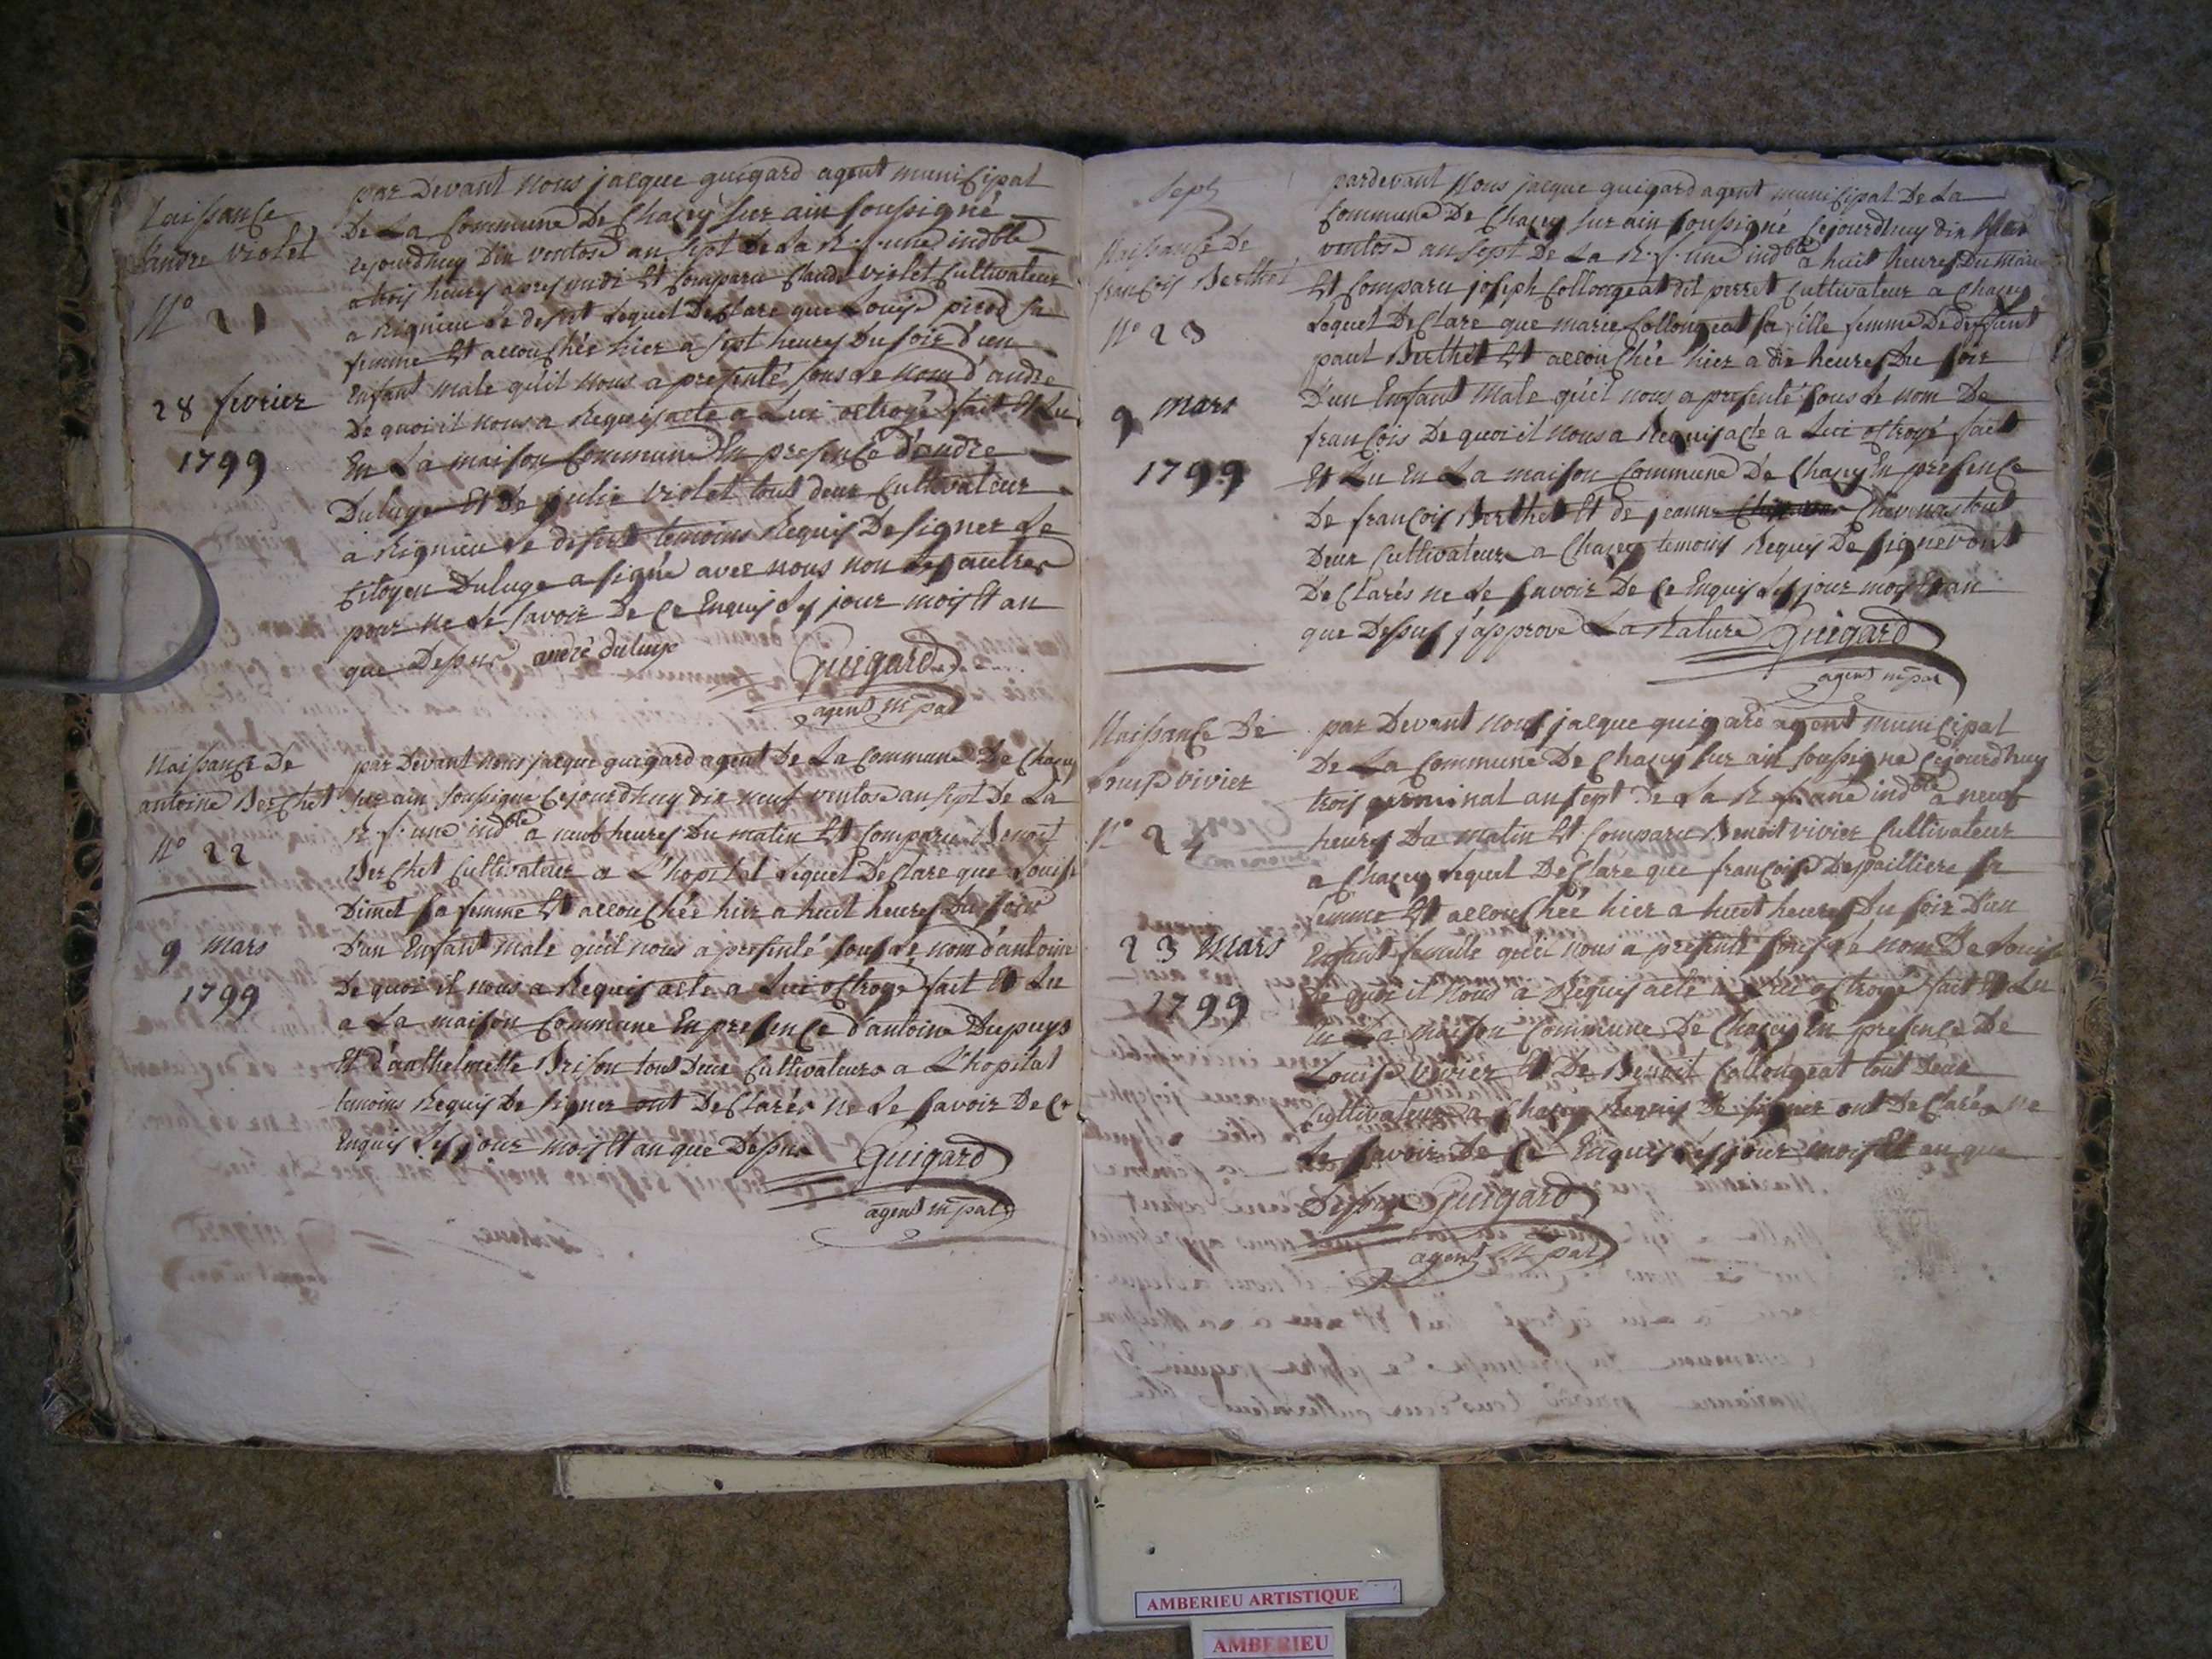 Naissance
d'andre violet
N° 21
28 fevrier
1799
par Devant Nous jacque guigard agent municipal
De La Commune De Chazey sur ain soussigné
cejourdhuy Dix ventose an sept De La R. f. une indble
a trois heures apres midi Est Comparu Claude violet Cultivateur
a Rignieu le desert Lequel Declare que Louise pirod sa
femme Est accouchée hier a sept heures Du soir d'un
Enfant male qu'il nous a presenté sous Le nom d'andre
De quoi il nous a Requis acte a Lui octroyé fait Et Lu
En La maison Commune En presence d'andre
Duluge Et De julie violet tout deux Cultivateur
a Rignieu le desert temoins Requis De signer Le
Citoyen Duluge a signé avec nous non Les autres
pour ne Le savoir De Ce Enquis Les jour mois Et an
que Dessus andré duluge Guigard
agent mpal
Naissance De
antoine Berchet
N° 22
9 mars
1799
par Devant Nous jacque guigard agent De La Commune De Chazey
sur ain soussigné Cejourdhuy dix neuf ventose an sept De La
R. f. une indble a neuf heures Du matin Est Comparu Benoit
Berchet Cultivateur a L'hopital Lequel Declare que Louise
Dimet sa femme Est accouchée hier a huit heures Du soir
D'un Enfant male qu'il nous a presenté sous Le nom d'antoine
De quoi il nous a Requis acte a Lui octroyé fait Et Lu
a La maison Commune En presence d'antoine Dupuys
Et d'anthelmette Brison tous Deux Cultivateurs a L'hopital
temoins Requis De signer ont Declarés ne Le savoir De Ce
Enquis Les jour mois Et an que Dessus Guigard
agent mpal
Sept
Naissance De
françois Berthet
N° 23
9 mars
1799
pardevant Nous jacque guigard agent municipal De La
Commune De Chazey sur ain soussigné Cejourdhuy dix
ventose an sept De La R. f. une indble a huit heures Du matin
Est Comparu joseph Collongeat dit perret Cultivateur a Chazey
Lequel Declare que marie Collongeat sa fille femme De deffunt
paul Berthet Est accouchée hier a dix heures Du soir
D'un Enfant Male qu'il nous a presenté sous Le nom De
françois De quoi il nous a Requis acte a Lui octroyé fait
Et Lu En La maison Commune De Chazey En presence
De françois Berthet Et de jeanne Chevenas tout
Deux Cultivateur a Chazey temoins Requis De signer ont
Declarés ne Le savoir De Ce Enquis Les jour mois Et an
que Dessus j'approve La Rature Guigard
agent mpal
Naissance De
Louise vivier
N° 24
23 mars
1799
par Devant Nous jacque guigard agent municipal
De La Commune De Chazey sur ain soussigné Cejourdhuy
trois germinal an sept De La R. f. une indble a neuf
heures Du matin Est Comparu Benoit vivier Cultivateur
a Chazey Lequel Declare que françoise Depailliere sa
femme Est accouchée hier a huit heures Du soir D'un
Enfant femelle qu'il nous a presenté sous Le nom De Louise
De quoi il Nous a Requis acte a Lui octroié fait Et Lu
En La maison Commune De Chazey En presence De
Louise vivier Et De Benoit Collongeat tout Deux
Cultivateurs a Chazey Requis De signer ont Declarés ne
Le savoir De Ce Enquis Les jour mois Et an que
Dessus Guigard
agent mpal
AMBERIEU ARTISTIQUE
AMBERIEU